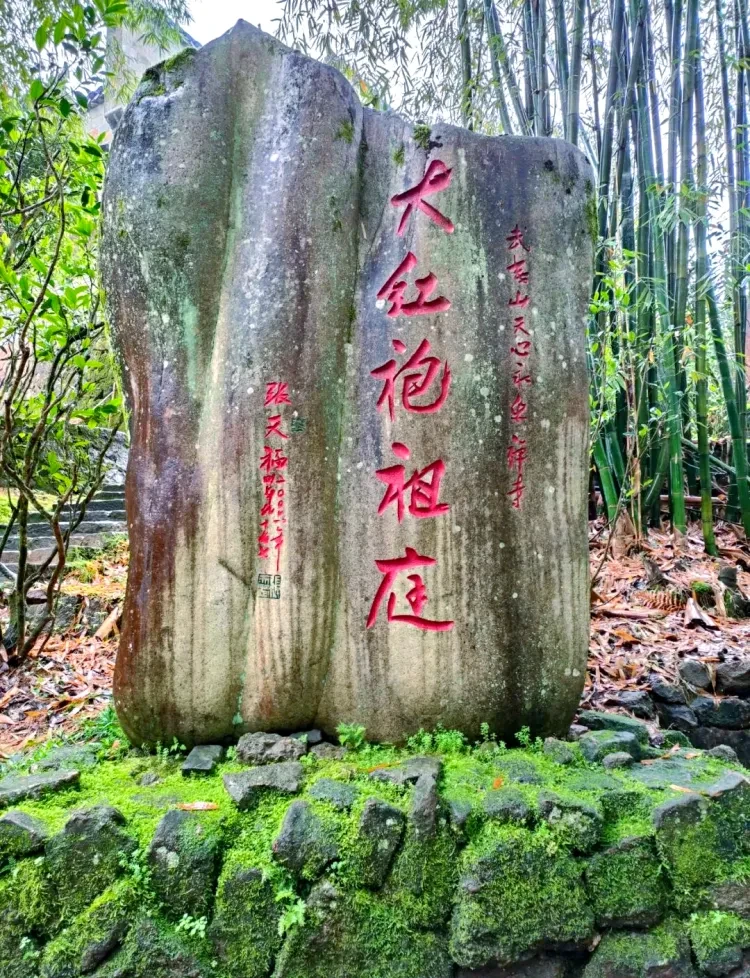 武夷山天心永乐禅寺
大红袍祖庭
张天福